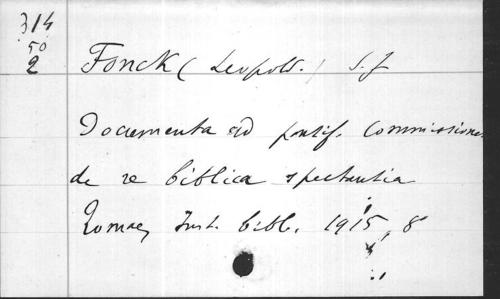 314
50
2
Fonck (Leopold.) S.J
Documenta ad pontif. Commissionem
de re biblica spectantia
Romae, Inst. bibl. 1915, 8°